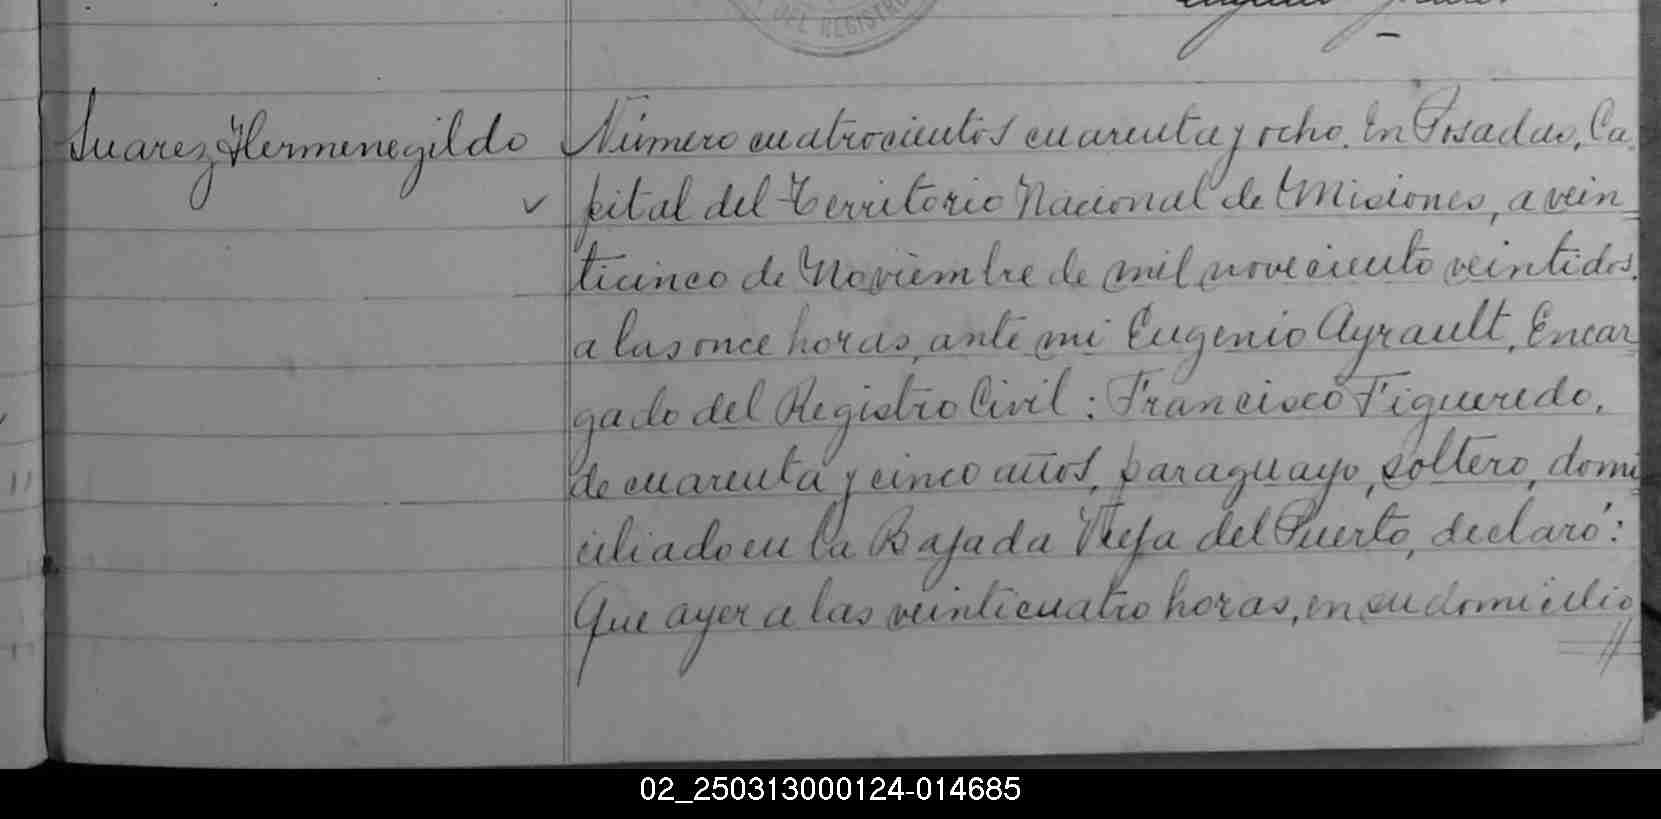 DEL REGISTRO
Suarez, Hermenegildo
Número cuatrocientos cuarenta y ocho. En Posadas, Ca-
pital del Territorio Nacional de Misiones, a vein-
ticinco de Noviembre de mil noveciento veintidos,
a las once horas, ante mi Eugenio Ayrault, Encar
gado del Registro Civil: Francisco Figueredo,
de cuarenta y cinco años, paraguayo, soltero, domi
ciliado en la Bajada Vieja del Puerto, declaró:
Que ayer a las veinticuatro horas, en su domicilio
02_250313000124-014685